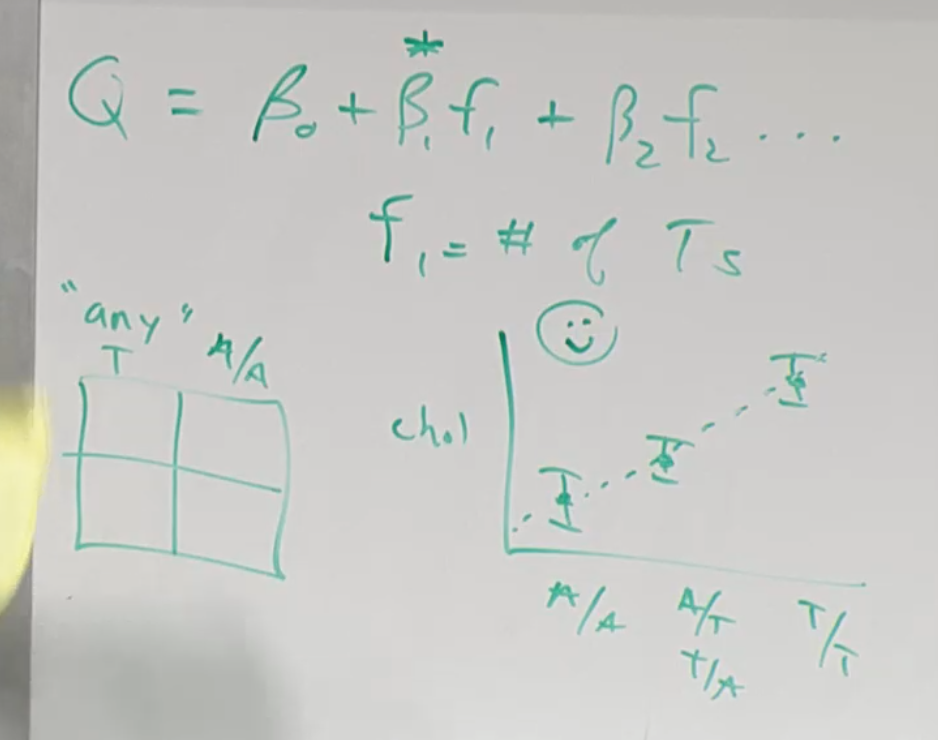 *
Q = β₀ + β₁ f₁ + β₂ f₂ ...
f₁ = # of Ts
"any" A/A
T
chol
A/A A/T T/T
T/A